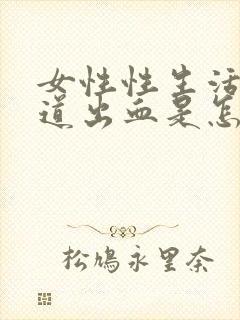 女性性生活
道出血是怎
松鳩永里奈